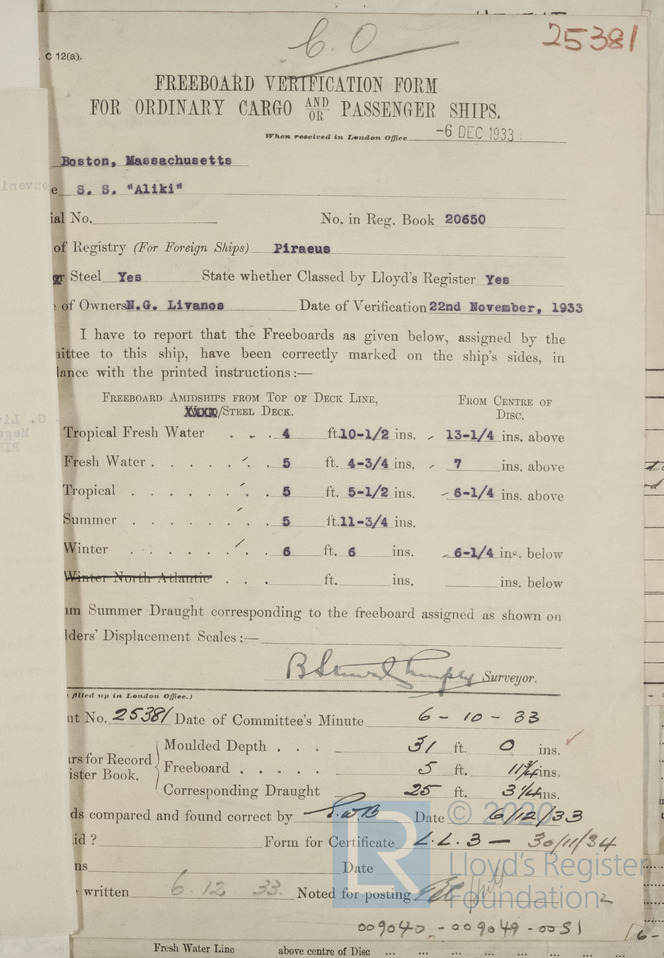 C. O
25381
C 12(a).
FREEBOARD VERIFICATION FORM
FOR ORDINARY CARGO AND/OR PASSENGER SHIPS.
When received in London Office -6 DEC 1933
Boston, Massachusetts
e S. S. "Aliki"
ial No. No. in Reg. Book 20650
of Registry (For Foreign Ships) Piraeus
or Steel Yes State whether Classed by Lloyd's Register Yes
of Owners N.G. Livanos Date of Verification 22nd November, 1933
I have to report that the Freeboards as given below, assigned by the
ittee to this ship, have been correctly marked on the ship's sides, in
lance with the printed instructions:—
FREEBOARD AMIDSHIPS FROM TOP OF DECK LINE, FROM CENTRE OF
/STEEL DECK. DISC.
Tropical Fresh Water . . . 4 ft. 10-1/2 ins. 13-1/4 ins. above
Fresh Water . . . . . . 5 ft. 4-3/4 ins. 7 ins. above
Tropical . . . . . . . 5 ft. 5-1/2 ins. 6-1/4 ins. above
Summer . . . . . . . 5 ft. 11-3/4 ins.
Winter . . . . . . . 6 ft. 6 ins. 6-1/4 ins. below
Winter North Atlantic . . . ft. ins. ins. below
um Summer Draught corresponding to the freeboard assigned as shown on
lders' Displacement Scales:—
Surveyor.
filled up in London Office.)
nt No. 25381 Date of Committee's Minute 6 - 10 - 33
Moulded Depth . . . 31 ft. 0 ins.
rs for Record
Freeboard . . . . . 5 ft. 11 3/4 ins.
ister Book.
Corresponding Draught 25 ft. 3 1/4 ins.
ds compared and found correct by Date 6/12/33
id ? Form for Certificate L.L.3 — 30/11/34
ns Date
written 6.12.33. Noted for posting
© 2020
Lloyd's Register
Foundation
LR
009040 - 009049 - 0051
Fresh Water Line above centre of Disc